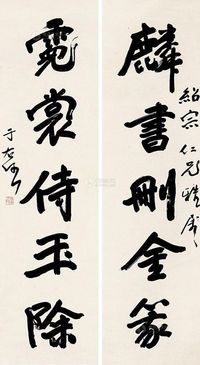 麟書刪金篆
紹宗仁兄雅屬
霓裳侍玉除
于右任